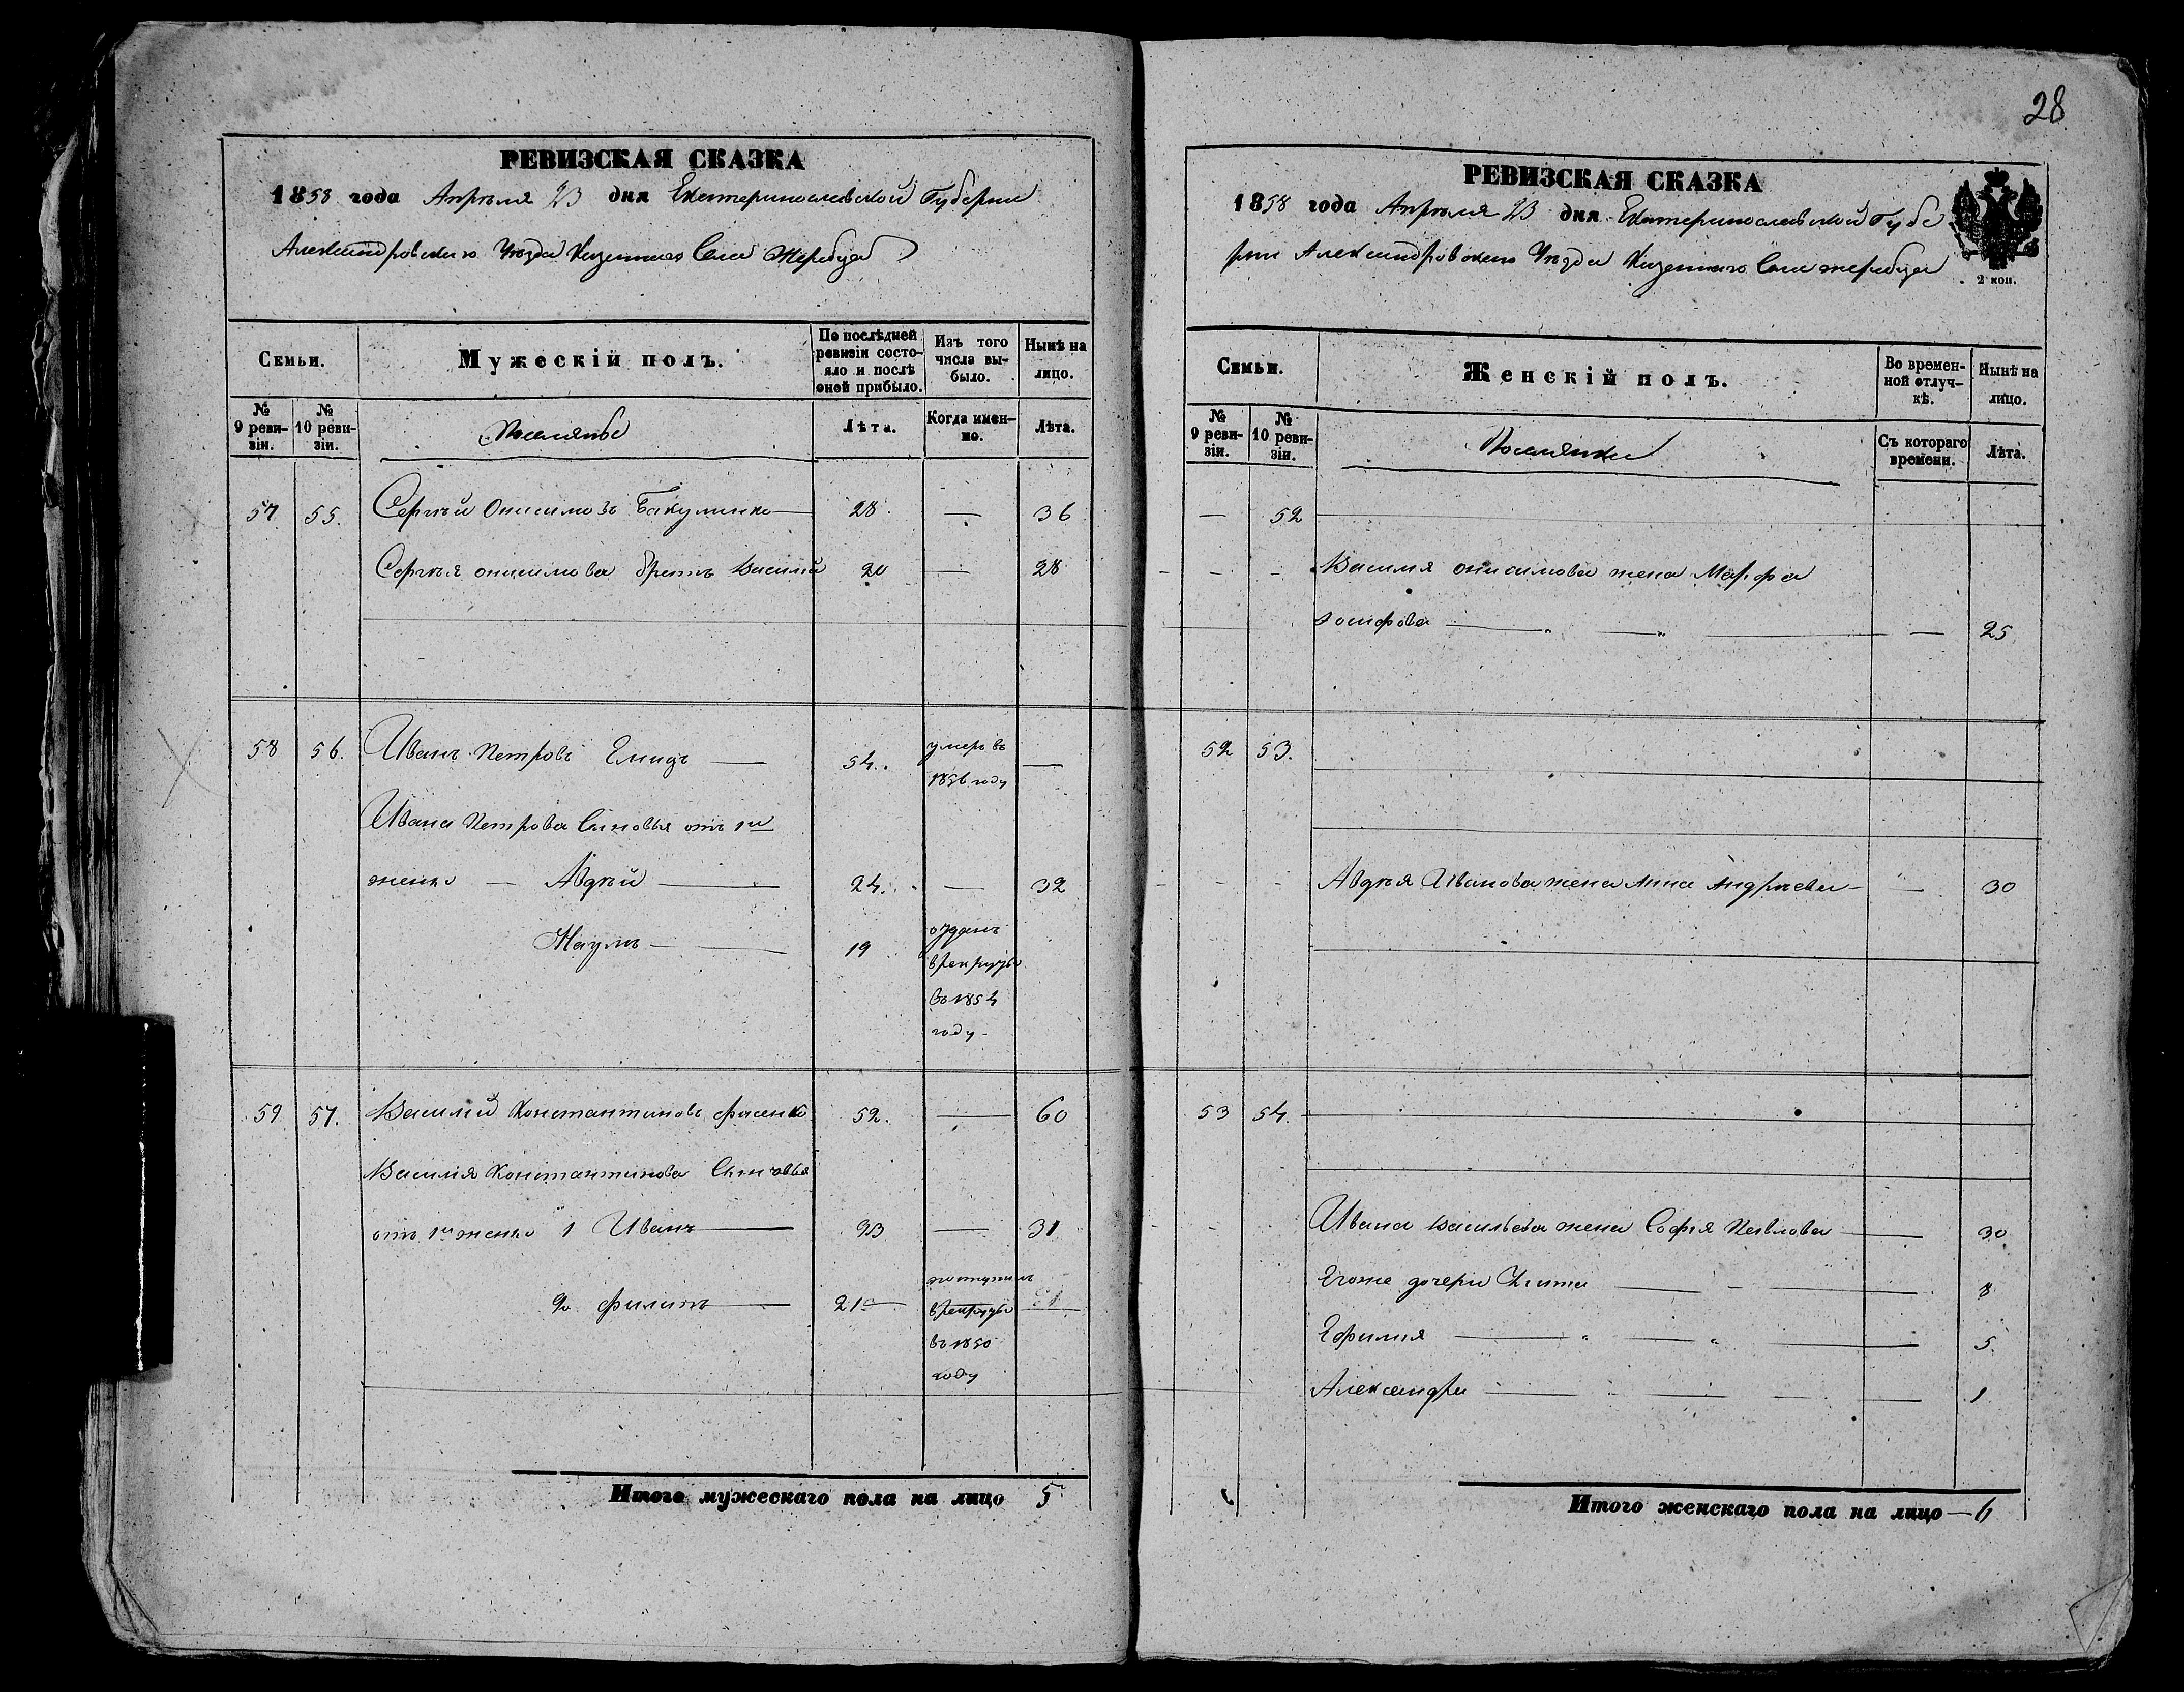 28
РЕВИЗСКАЯ СКАЗКА
1858 года Апрѣля 23 дня Екатеринославской Губерніи
Александровскаго Уѣзда Казеннаго Села Жеребца
Семьи.
Мужескій полъ.
По послѣдней ревизіи состояло и послѣ оной прибыло.
Изъ того числа выбыло.
Нынѣ на лицо.
№ 9 ревизіи.
№ 10 ревизіи.
Поселяне
Лѣта.
Когда именно.
Лѣта.
57 55. Сергѣй Онисимовъ Бакуменко 28 — 36
Сергѣя онисимова братъ Василій 20 — 28
58 56. Иванъ Петровъ 54. умеръ въ —
1856 году
Ивана Петрова Сыновья отъ 1й
жены — Авдѣй 24. — 32
Наумъ 19 отданъ
в рекруты
въ 1854
году
59 57. Василій Константиновъ 52. — 60
Василія Константинова Сыновья
отъ 1й жены 1 Иванъ 23 — 31
2 филипъ 21 поступилъ
в рекруты
въ 1850
году
Итого мужескаго пола на лицо 5
РЕВИЗСКАЯ СКАЗКА
1858 года Апрѣля 23 дня Екатеринославской Губе
рніи Александровскаго Уѣзда Казеннаго Села жеребца
2 коп.
Семьи.
Женскій полъ.
Во временной отлучкѣ.
Нынѣ на лицо.
№ 9 ревизіи.
№ 10 ревизіи.
Поселянки
Съ котораго времени.
Лѣта.
— 52
Василія онисимова жена Марфа
Іосифова — 25
52 53.
Авдѣя Иванова жена Анна Андреева — 30
53 54.
Ивана васильева жена Софія Павлова — 30
Егоже дочери 8
Ефимія — 5
Александра — 1
Итого женскаго пола на лицо — 6